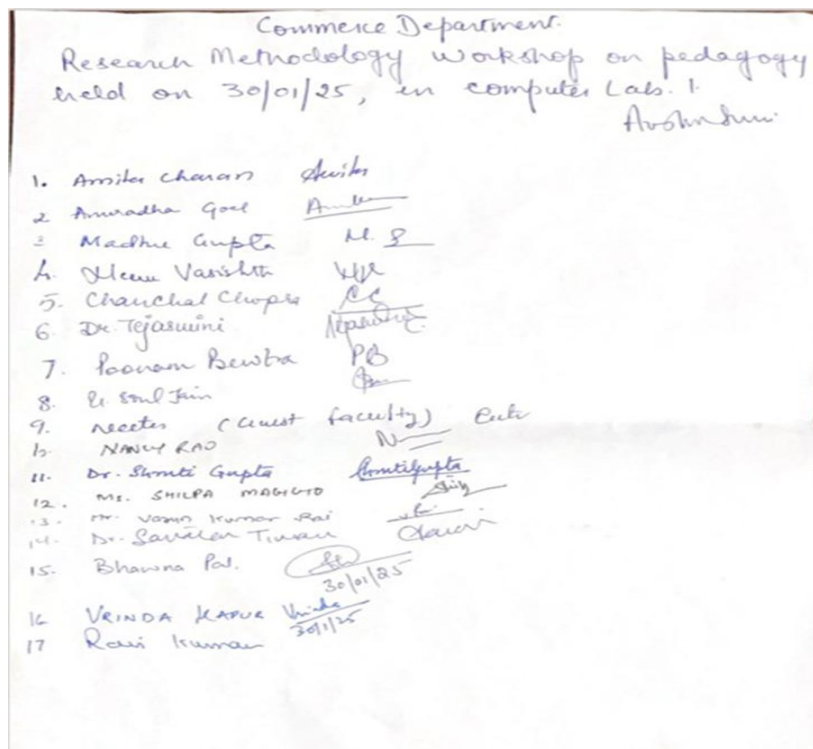 Commerce Department.
Research Methodology workshop on pedagogy
held on 30/01/25, in computer Lab. 1.
1. Amita Charan
2 Anuradha Goel
3 Madhu Gupta M. G
4. Meenu Varishth
5. Chanchal Chopra CC
6. Dr. Tejaswini
7. Poonam Bewtra PB
8. Jain
9. neetu (Guest faculty)
10. NANCY RAO N
11. Dr. Shruti Gupta Shrutigupta
12. Ms. SHILPA
13. Mr. Varun Kumar Rai
14. Dr. Tiwari
15. Bhawna Pal.
30/01/25
16 VRINDA KAPUR Vrinda
30/1/25
17 Ravi Kumar